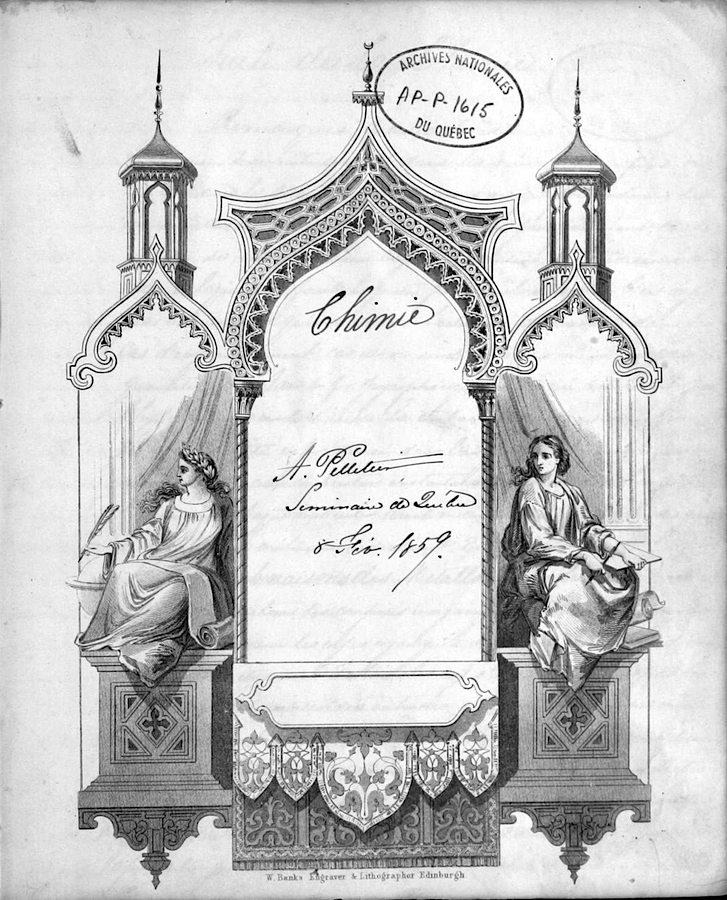 ARCHIVES NATIONALES
AP-P-1615
DU QUÉBEC
Chimie
A. Pelletier
Seminaire de Québec
8 Fév. 1859.
W. Banks Engraver & Lithographer Edinburgh